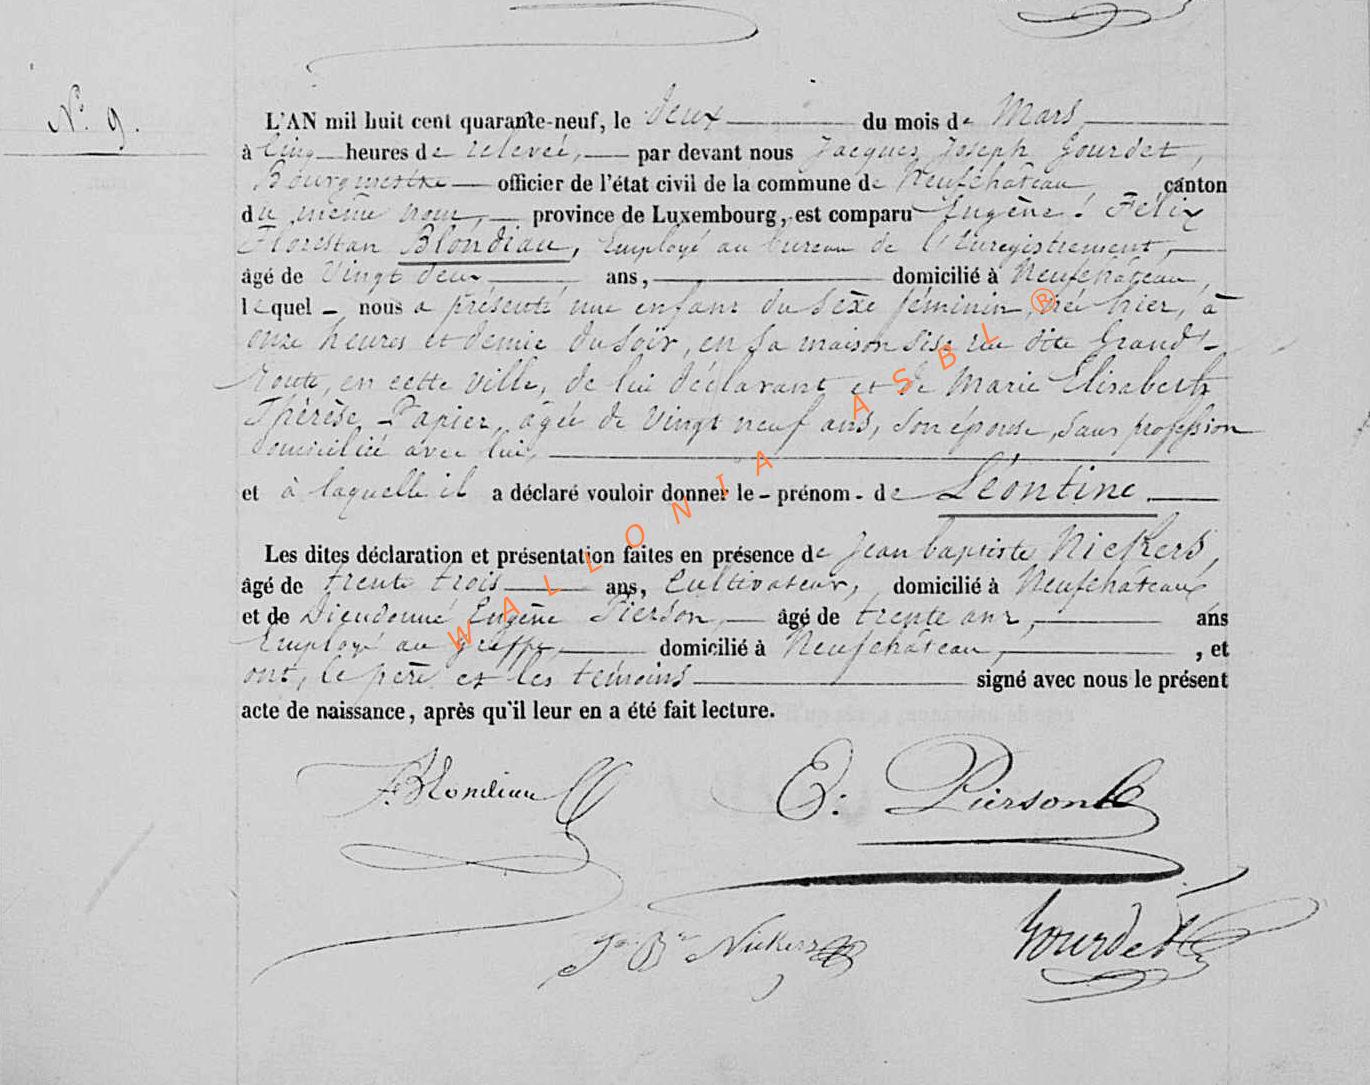 N.° 9.
L'AN mil huit cent quarante-neuf, le deux du mois de Mars,
à cinq heures de relevée, par devant nous Jacques Joseph Gourdet,
Bourgmestre officier de l'état civil de la commune de Neufchâteau, canton
du même nom, province de Luxembourg, est comparu Eugène Félix
Florestan Blondiau, Employé au bureau de l'Enregistrement,
âgé de Vingt deux ans, domicilié à Neufchâteau,
lequel nous a présenté une enfant du Sexe féminin, née hier, à
onze heures et demie du Soir, en sa maison sise rue dite Grand'-
Route, en cette Ville, de lui déclarant et de Marie Elisabeth
Thérèse Papier, âgée de Vingt neuf ans, son épouse, sans profession
domiciliée avec lui,
et à laquelle il a déclaré vouloir donner le - prénom - de Léontine
Les dites déclaration et présentation faites en présence de Jean baptiste Nickers,
âgé de trente trois ans, Cultivateur, domicilié à Neufchâteau
et de Dieudonné Eugène Pierson, âgé de trente ans, ans
Employé au greffe, domicilié à Neufchâteau, , et
ont, le père et les témoins signé avec nous le présent
acte de naissance, après qu'il leur en a été fait lecture.
F. Blondiau E. Pierson
Jn Bte Nickers Gourdet
WALLONIA ASBL ®